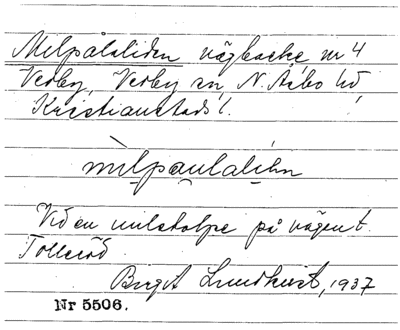 Melpålaliden vägbacke, nr 4
Verby, Verby sn, N. Åsbo hd
Kristianstads l.
mìlpaulalìdn
Vid en milstolpe på vägen t.
Tolleröd
Birgit Lundkvist, 1937
Nr 5506.